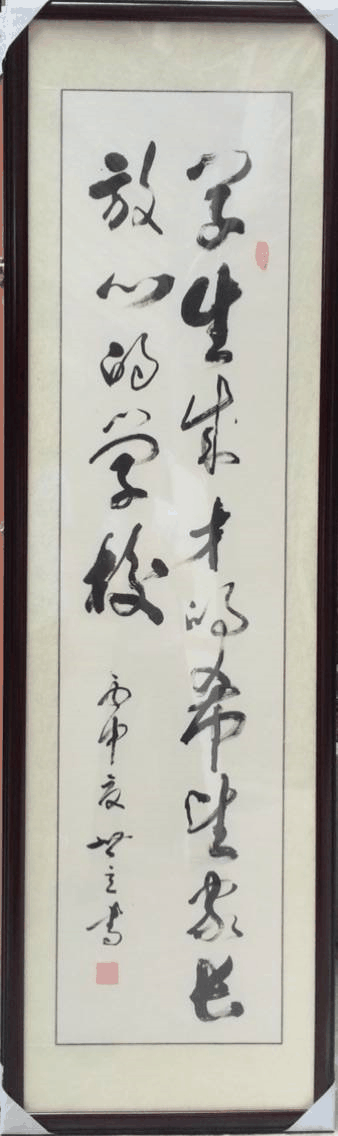 学生成才的希望家长
放心的学校
丙申夏世立书